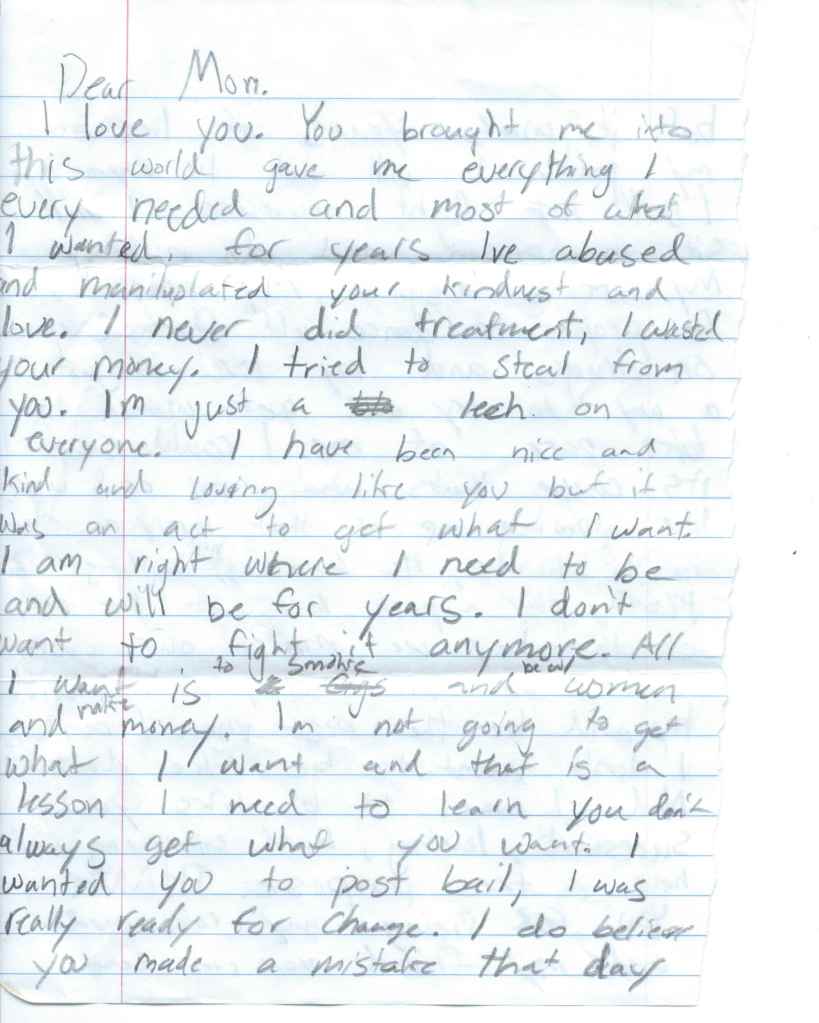 Dear Mom.
I love you. You brought me into
this world gave me everything I
every needed and most of what
I wanted, for years Ive abused
and maniluplated your kindness and
love. I never did treatment, I wasted
your money. I tried to steal from
you. Im just a leech on
everyone. I have been nice and
kind and loving like you but it
was an act to get what I want.
I am right where I need to be
and will be for years. I don't
want to fight it anymore. All
I want is to smoke and be w/ women
and make money. Im not going to get
what I want and that is a
lesson I need to learn you don't
always get what you want. I
wanted you to post bail, I was
really ready for change. I do believe
you made a mistake that day